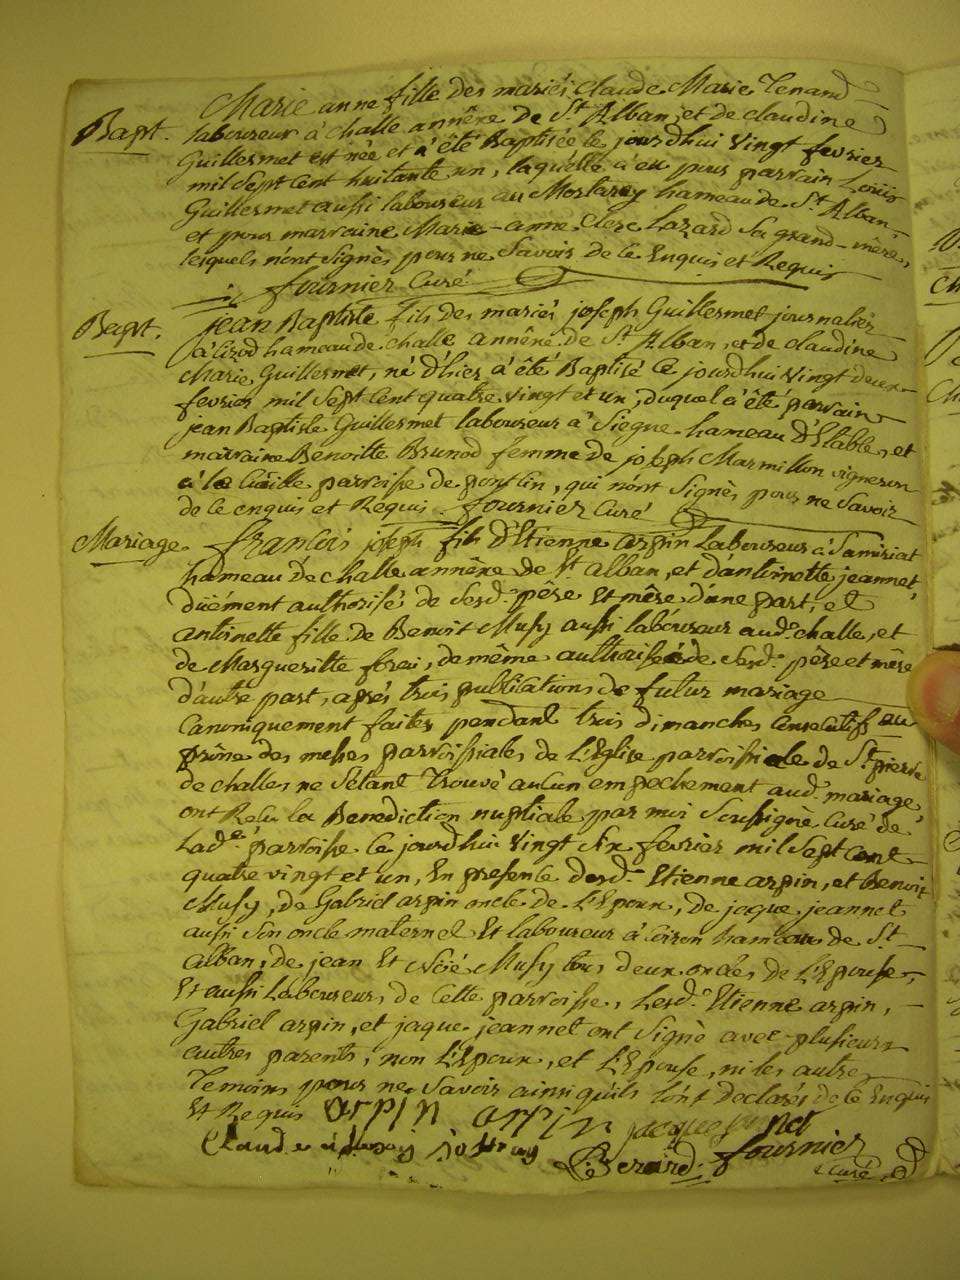 Marie anne fille des mariés Claude Marie Tenand
Bapt. laboureur à Challe annêxe de St. Alban, et de claudine
Guillermet est née et à été Baptisée le jourdhui vingt fevrier
mil sept cent huitante un, laquelle à eu pour parrain Louis
Guillermet aussi laboureur au Mortarey hameau de St. Alban
et pour marraine Marie-anne Clerc Lazard sa grand-mère,
lesquels n'ont signès pour ne savoir de ce Enquis et Requis
fournier Curé
Bapt. jean Baptiste fils des mariés joseph Guillermet journalier
à hameau de challe annêxe de St. Alban, et de claudine
Marie Guillermet, né d'hier à été Baptisé ce jourdhui vingt deux
fevrier mil sept cent quatre vingt et un, duquel à été parrain
jean Baptiste Guillermet laboureur à Siegne hameau d'Etables, et
marraine Benoitte Brunod femme de joseph Marmillon vigneron
à la parroisse de pontin, qui n'ont signès pour ne savoir
de ce enquis et Requis. fournier Curé
Mariage. francois joseph fils d'Etienne arpin Laboureur à Samiriat
hameau de challe annêxe de St. alban, et d'antoinette jeannet,
düement authorisé de sesd. père Et mère d'une part, et
antoinette fille de Benoit Musy aussi laboureur aud. challe, et
de Margueritte frai, de même authorisée de sesd. père et mère
d'autre part, aprés trois publications de futur mariage
Canoniquement faites pendant trois dimanches consecutifs au
prône des messes parroissiales de L'Eglise parroissiale de St. pierre
de challes ne s'étant trouvé aucun empechement aud. mariage
ont Reçu la Benediction nuptiale par moi Soussigné Curé de
Lad.e parroisse ce jourdhui vingt six fevrier mil sept cent
quatre vingt et un, En presence desd. Etienne arpin, et Benoit
Musy, de Gabriel arpin oncle de L'Epoux, de jaque jeannet
aussi son oncle maternel Et laboureur à hameau de St.
alban, de jean Et Musy tous deux oncles de L'Epouse,
Et aussi Laboureurs de Cette parroisse, Lesd. Etienne arpin,
Gabriel arpin, et jaque jeannet ont signé avec plusieurs
autres parents, non L'Epoux, et L'Epouse, ni les autres
Temoins pour ne savoir ainsi qu'ils l'ont declarés de ce Enquis
Et Requis arpin arpin jacque
Claude
Berard fournier
curé